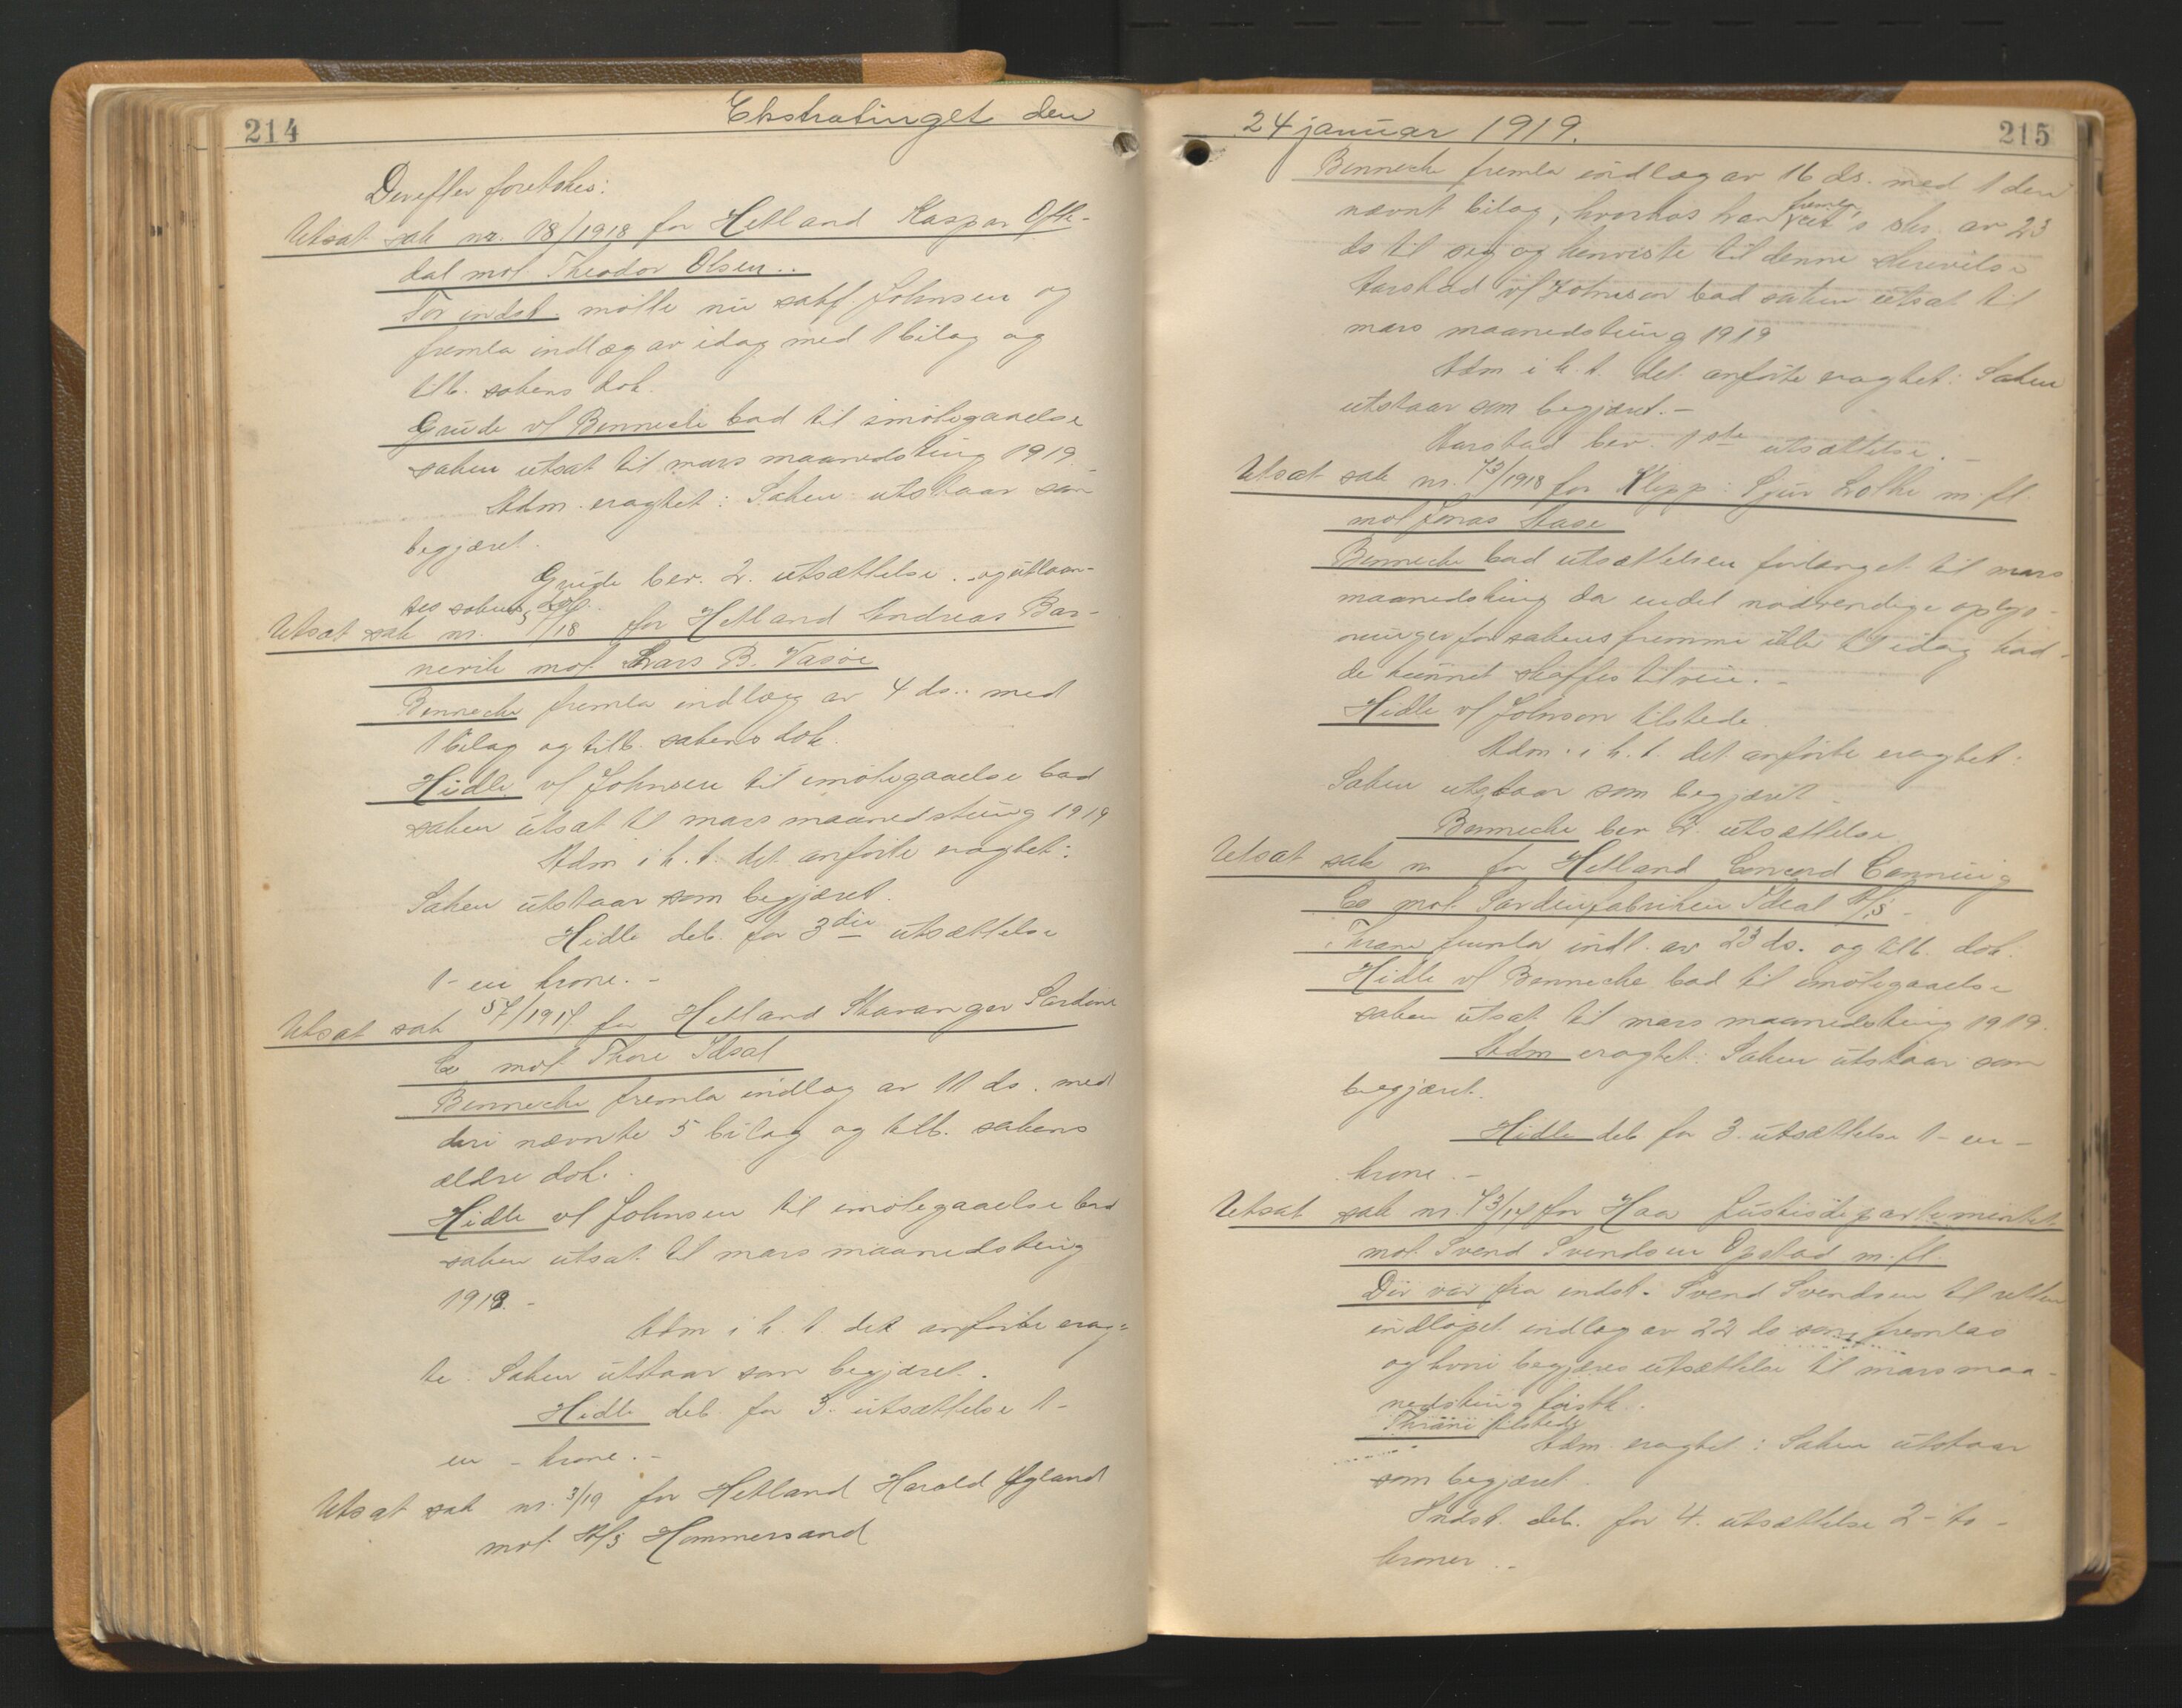 214
Ekstratinget den
Derefter foretokes:
Utsat sak nr. 18/1918 for Hetland Kaspar Oft-
dal mot Theodor Olsen..
For indst. møtte nu sakf. Johnsen og
fremla indlæg av idag med 1 bilag og
tilb. sakens dok.
Grude v/ Bennecke bad til imøtegaaelse
saken utsat til mars maanedsting 1919.-
Adm. eragtet: Saken utstaar som
begjæret.
Grude bev. 2. utsættelse. og utlaan-
tes sakens dok.
Utsat sak nr. /18 for Hetland Andreas Bar-
nevik mot Lars B. Vasøe
Bennecke fremla indlæg av 4 ds. med
1 bilag og tilb. sakens dok.
Hidle v/ Johnsen til imøtegaaelse bad
saken utsat til mars maanedsting 1919
Adm i h. t. det anførte eragtet:
Saken utstaar som begjæret.
Hidle deb. for 3die utsættelse
1 - en krone.-
Utsat sak 57/1917 for Hetland Stavanger Sardine
Co mot Thore Idsal
Bennecke fremla indlæg av 11 ds. med
deri nævnte 5 bilag og tilb. sakens
ældre dok.
Hidle v/ Johnsen til imøtegaaelse bad
saken utsat til mars maanedsting
1919.-
Adm i h. t. det anførte erag-
te: Saken utstaar som begjæret.
Hidle deb. for 3. utsættelse 1-
en - krone.-
Utsat sak nr. 3/19 for Hetland Harald Øgland
mot A/S Hommersand
24 januar 1919.
215
Bennecke fremla indlæg av 16 ds. med 1 deri
nævnt bilag, hvorhos han fremla s skr. av 23
ds til seg og henviste til denne skrivelse
Aarstad v/ Johnsen bad saken utsat til
mars maanedsting 1919
Adm i h. t. det anførte eragtet: Saken
utstaar som begjæret.-
Aarstad bev. 1ste utsættelse.-
Utsat sak nr. 73/1918 for Klepp: Sjur Lothe m. fl
mot Jonas Aase
Bennecke bad utsættelsen forlænget til mars
maanedsting da endel nødvendige oplys-
ninger for sakens fremme ikke til idag had-
de kunnet skaffes tilveie.-
Hidle v/ Johnson tilstede
Adm. i h. t. det anførte eragtet:
Saken utstaar som begjæret.-
Bennecke bev 2. utsættelse
Utsat sak nr for Hetland Concord Canning
Co mot Sardinfabriken Ideal A/S.-
Thrane fremla indl. av 23 ds. og tilb. dok.
Hidle v/ Bennecke bad til imøtegaaelse
saken utsat til mars maanedsting 1919.
Adm eragtet: Saken utstaar som
begjæret.
Hidle deb. for 3. utsættelse 1 - en -
krone.-
Utsat sak nr. 73/17 for Haa Justisdepartementet
mot Svend Svendsen Opstad m. fl.
Der var fra indst. Svend Svendsen til retten
indløpet indlæg av 22 ds som fremlaes
og hvori begjæres utsættelse til mars maa-
nedsting førstk.
Thrane tilstede
Adm. eragtet: Saken utstaar
som begjæret.
Indst. deb. for 4. utsættelse 2 - to -
kroner.-